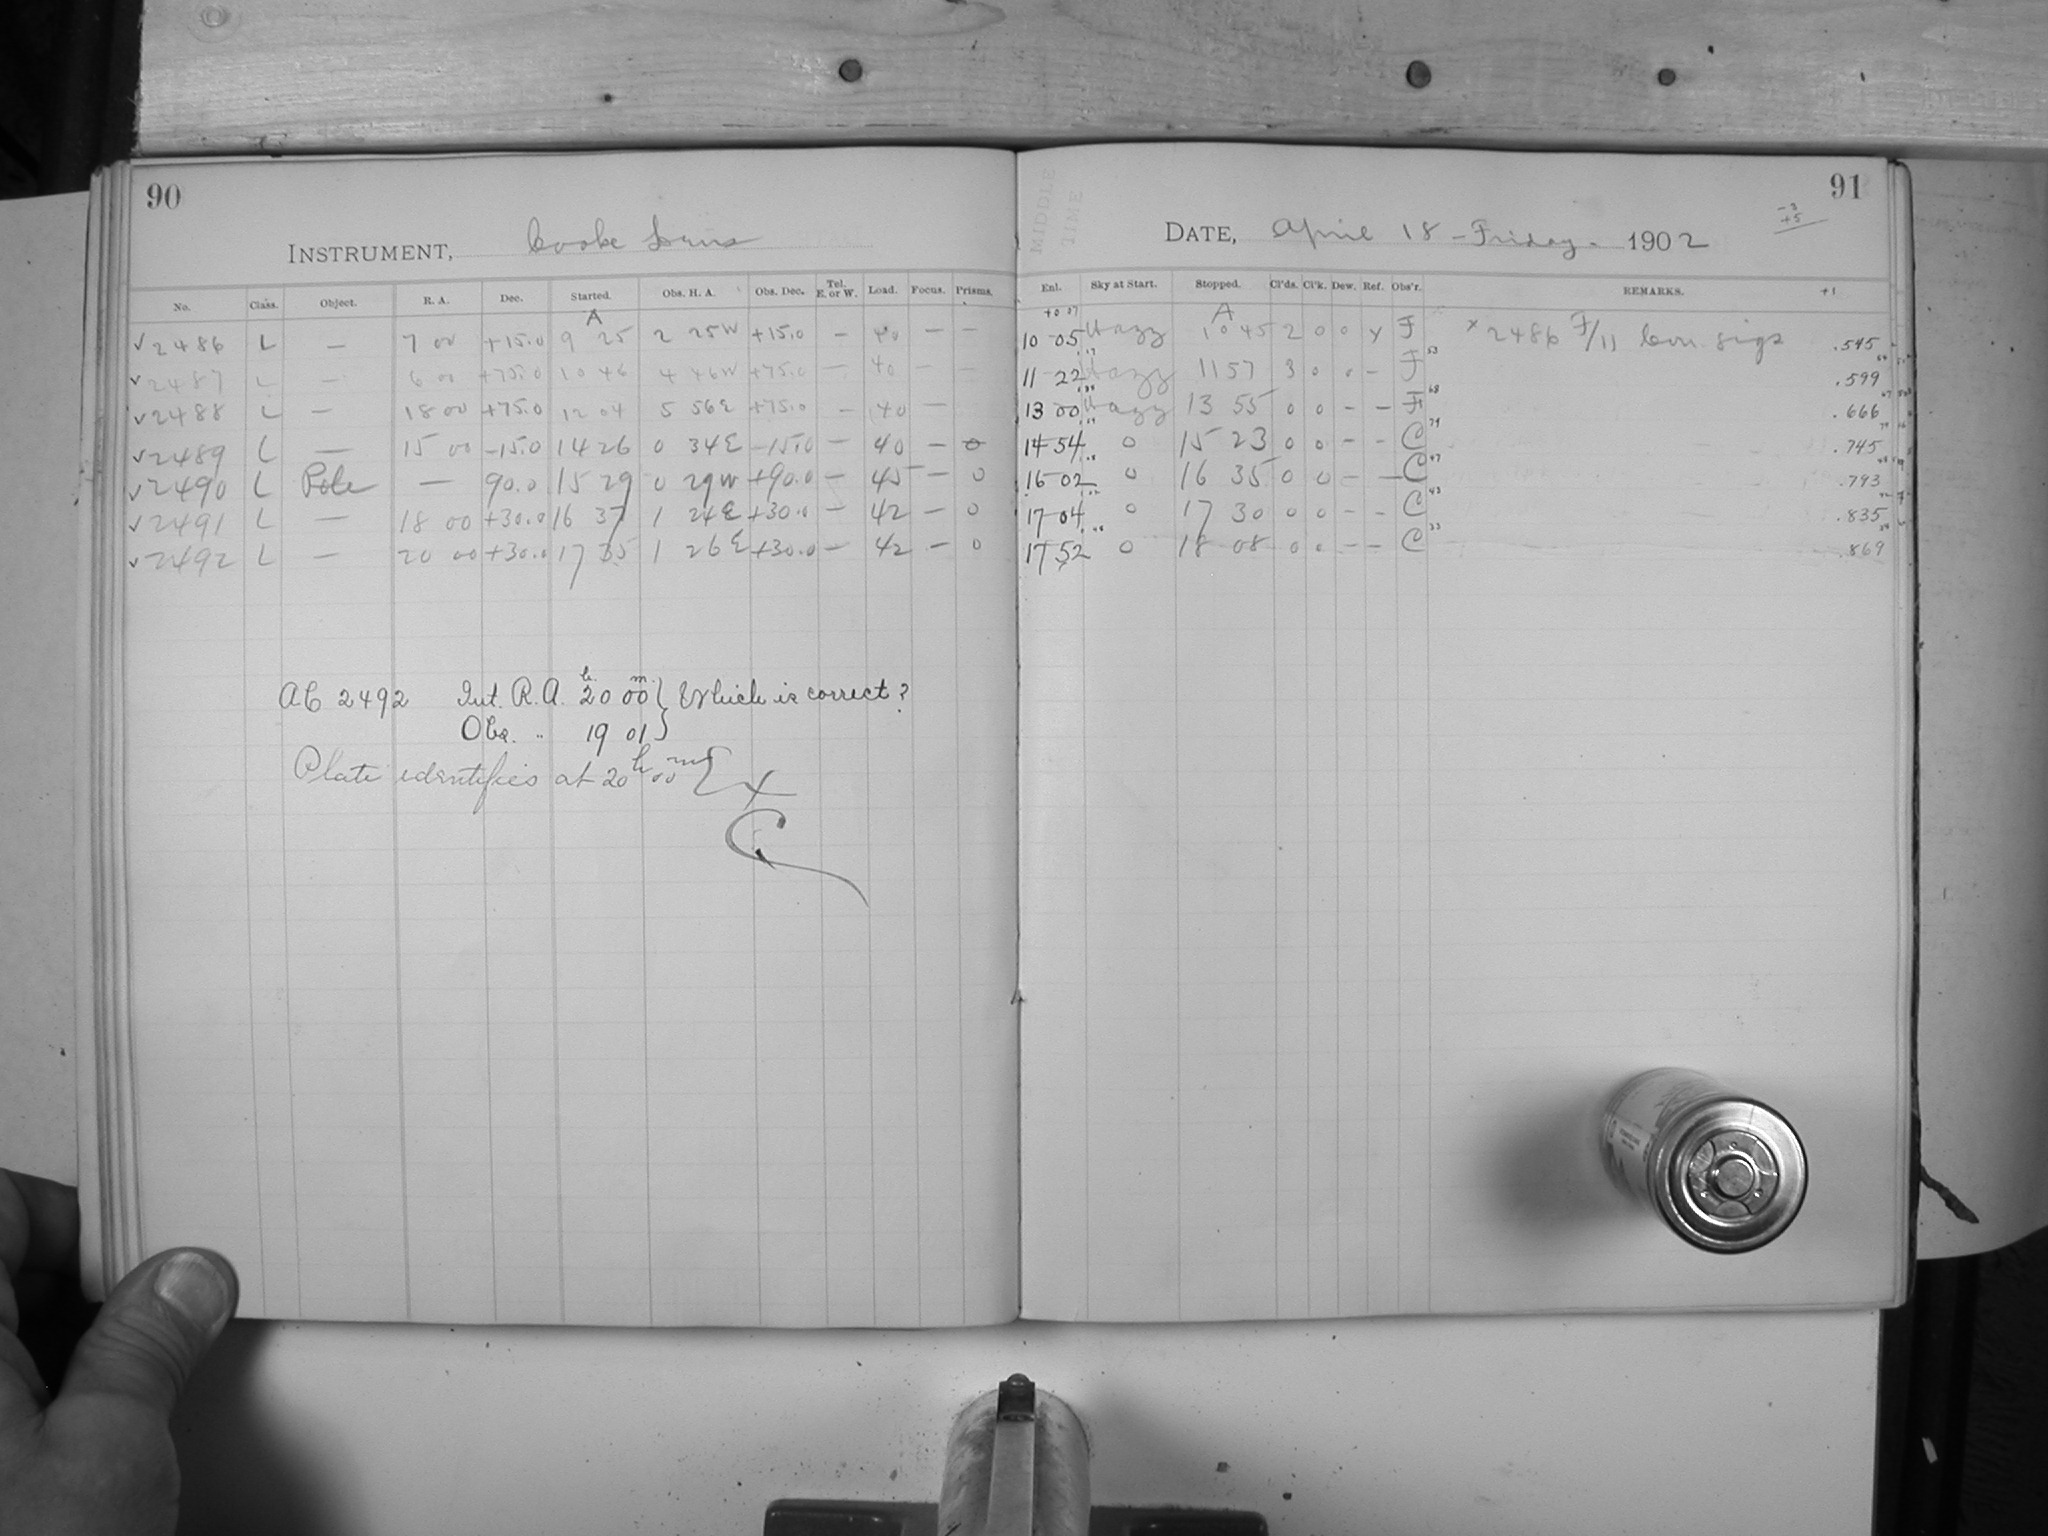 90
INSTRUMENT, Cooke Lens
No. Class. Object. R. A. Dec. Started. Obs. H. A. Obs. Dec. Tel. E. or W. Load. Focus. Prisms.
A
✓2486 L — 7 00 +15.0 9 25 2 25W +15.0 — 40 — —
✓2487 L — 6 00 +75.0 10 46 4 46W +75.0 — 40 — —
✓2488 L — 18 00 +75.0 12 04 5 56E +75.0 — 40 —
✓2489 L — 15 00 -15.0 14 26 0 34E -15.0 — 40 — 0
✓2490 L Pole — 90.0 15 29 0 29W +90.0 — 45 — 0
✓2491 L — 18 00 +30.0 16 37 1 24E +30.0 — 42 — 0
✓2492 L — 20 00 +30.0 17 35 1 26E +30.0 — 42 — 0
AC 2492 Int. R.A. 20h 00m } Which is correct?
Obs. " 19 01 }
Plate identifies at 20h 00m
C
91
MIDDLE TIME
DATE, April 18 - Friday. 1902
-3
+5
Enl. Sky at Start. Stopped. Cl'ds. Cl'k. Dew. Ref. Obs'r. REMARKS. +1
A
10 05 Hazy 10 45 2 0 0 x F x 2486 F/11 .545
11 22 Hazy 11 57 3 0 0 — F .599
13 00 Hazy 13 55 0 0 — — F .666
14 54 0 15 23 0 0 — — C .745
16 02 0 16 35 0 0 — — C .793
17 04 0 17 30 0 0 — — C .835
17 52 0 18 08 0 0 — — C .869